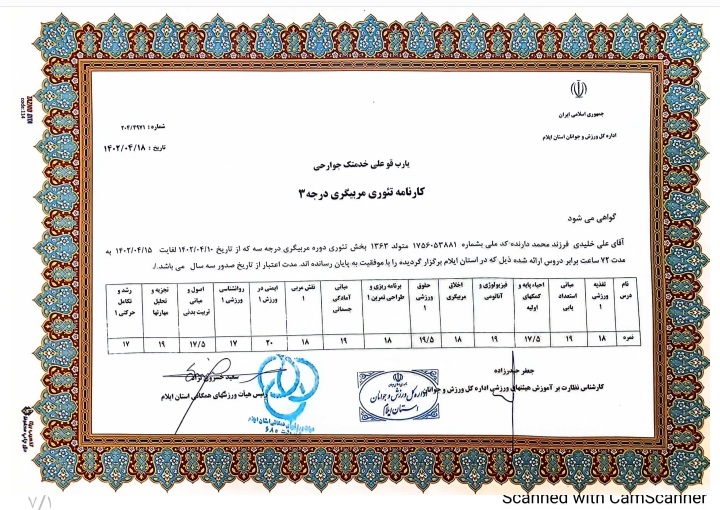 جمهوری اسلامی ایران
اداره کل ورزش و جوانان استان ایلام
شماره : ۲۰۴/۴۹۷۱
تاریخ : ۱۴۰۲/۰۴/۱۸
یارب قو علی خدمتک جوارحی
کارنامه تئوری مربیگری درجه ۳
گواهی می شود
آقای علی خلیدی فرزند محمد دارنده کد ملی بشماره ۱۷۵۶۰۵۳۸۸۱ متولد ۱۳۶۳ بخش تئوری دوره مربیگری درجه سه که از تاریخ ۱۴۰۲/۰۴/۱۰ لغایت ۱۴۰۲/۰۴/۱۵ به
مدت ۷۲ ساعت برابر دروس ارائه شده ذیل که در استان ایلام برگزار گردیده را با موفقیت به پایان رسانده اند. مدت اعتبار از تاریخ صدور سه سال می باشد./.
نام درس | تغذیه ورزشی ۱ | مبانی استعداد یابی | احیاء پایه و کمکهای اولیه | فیزیولوژی و آناتومی | اخلاق مربیگری | حقوق ورزشی ۱ | برنامه ریزی و طراحی تمرین ۱ | مبانی آمادگی جسمانی | نقش مربی ۱ | ایمنی در ورزش ۱ | روانشناسی ورزشی ۱ | اصول و مبانی تربیت بدنی | تجزیه و تحلیل مهارتها | رشد و تکامل حرکتی ۱
نمره | ۱۸ | ۱۹ | ۱۷/۵ | ۱۹ | ۱۸ | ۱۹/۵ | ۱۸ | ۱۹ | ۱۸ | ۲۰ | ۱۷ | ۱۷/۵ | ۱۹ | ۱۷
جعفر حیدرزاده
کارشناس نظارت بر آموزش هیئتهای ورزشی اداره کل ورزش و جوانان
اداره کل ورزش و جوانان
استان ایلام
رئیس هیأت ورزشهای همگانی استان ایلام
۶۸۰
code:114
۷/۱
Scanned with CamScanner